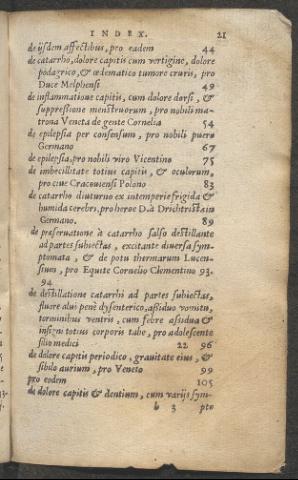 INDEX. 21
de ijsdem affectibus, pro eadem 44
de catarrho, dolore capitis cum vertigine, dolore
podagrico, & œdematico tumore cruris, pro
Duce Melphensi 49
de inflammatione capitis, cum dolore dorsi, &
suppressione menstruorum, pro nobili ma-
trona Veneta de gente Cornelia 54
de epilepsia per consensum, pro nobili puero
Germano 67
de epilepsia, pro nobili viro Vicentino 75
de imbecillitate totius capitis, & oculorum,
pro ciue Cracouiensi Polono 83
de catarrho diuturno ex intemperie frigida &
humida cerebri, pro heroe D. à Drichtrostain
Germano. 89
de preseruatione à catarrho falso destillante
ad partes subiectas, excitante diuersa sym-
ptomata, & de potu thermarum Lucen-
sium, pro Equite Cornelio Clementino 93.
94
de destillatione catarrhi ad partes subiectas,
fluore alui penè dysenterico, assiduo vomitu,
torminibus ventris, cum febre assidua &
insigni totius corporis tabe, pro adolescente
filio medici 22 96
de dolore capitis periodico, grauitate eius, &
sibilo aurium, pro Veneto 99
pro eodem 105
de dolore capitis & dentium, cum varijs sym-
b 3 pto